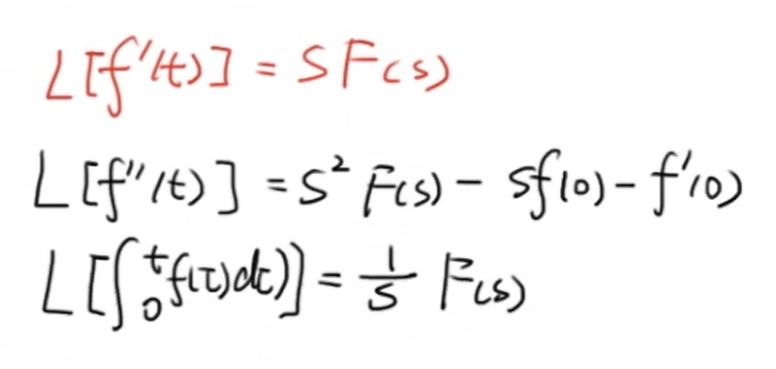 L[f'(t)] = SF(s)
L[f''(t)] = S² F(s) - Sf(0) - f'(0)
L[∫₀ᵗf(τ)dτ)] = 1/S F(s)